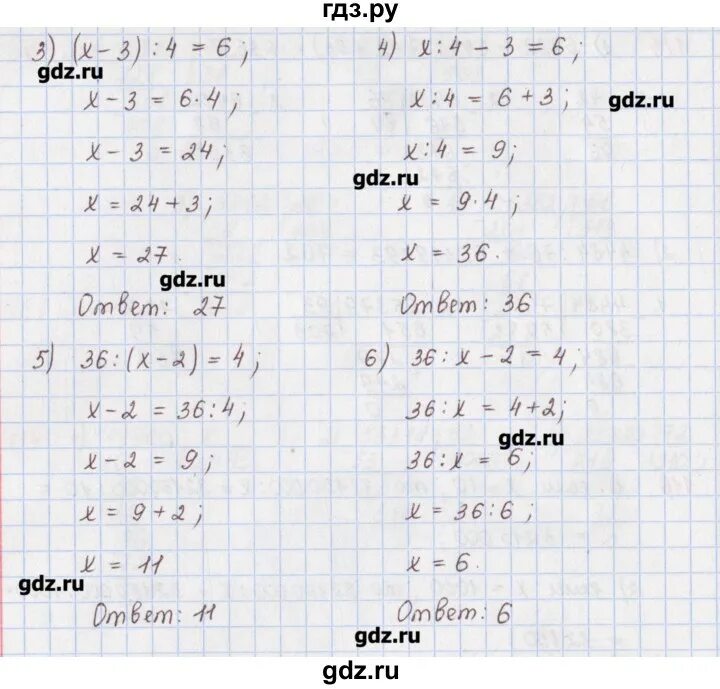 гдз.ру
3) (x-3) : 4 = 6;
gdz.ru
x-3 = 6·4;
x-3 = 24;
x = 24+3;
x = 27.
gdz.ru
Ответ: 27
4) x:4 - 3 = 6;
x:4 = 6+3;
gdz.ru
x:4 = 9;
gdz.ru
x = 9·4;
x = 36.
Ответ: 36
5) 36:(x-2) = 4;
x-2 = 36:4;
x-2 = 9;
x = 9+2;
x = 11
gdz.ru
Ответ: 11
6) 36:x - 2 = 4;
36:x = 4+2;
gdz.ru
36:x = 6;
x = 36:6;
x = 6.
Ответ: 6
gdz.ru
gdz.ru